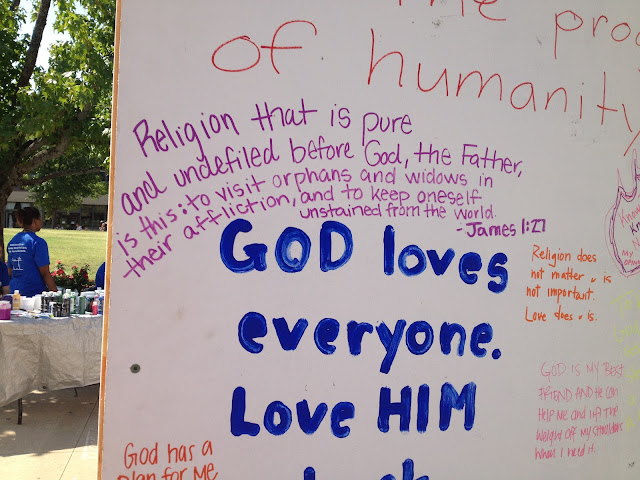 The proc
of humanity
Religion that is pure
and undefiled before God, the Father,
is this: to visit orphans and widows in
their affliction, and to keep oneself
unstained from the world.
- James 1:27
GOD loves
everyone.
Love HIM
Religion does
not matter & is
not important.
Love does & is.
GOD IS MY BEST
FRIEND AND HE CAN
HELP ME and lift THE
Weight OFF MY SHOULDERS
When I need it.
God has a
plan for me